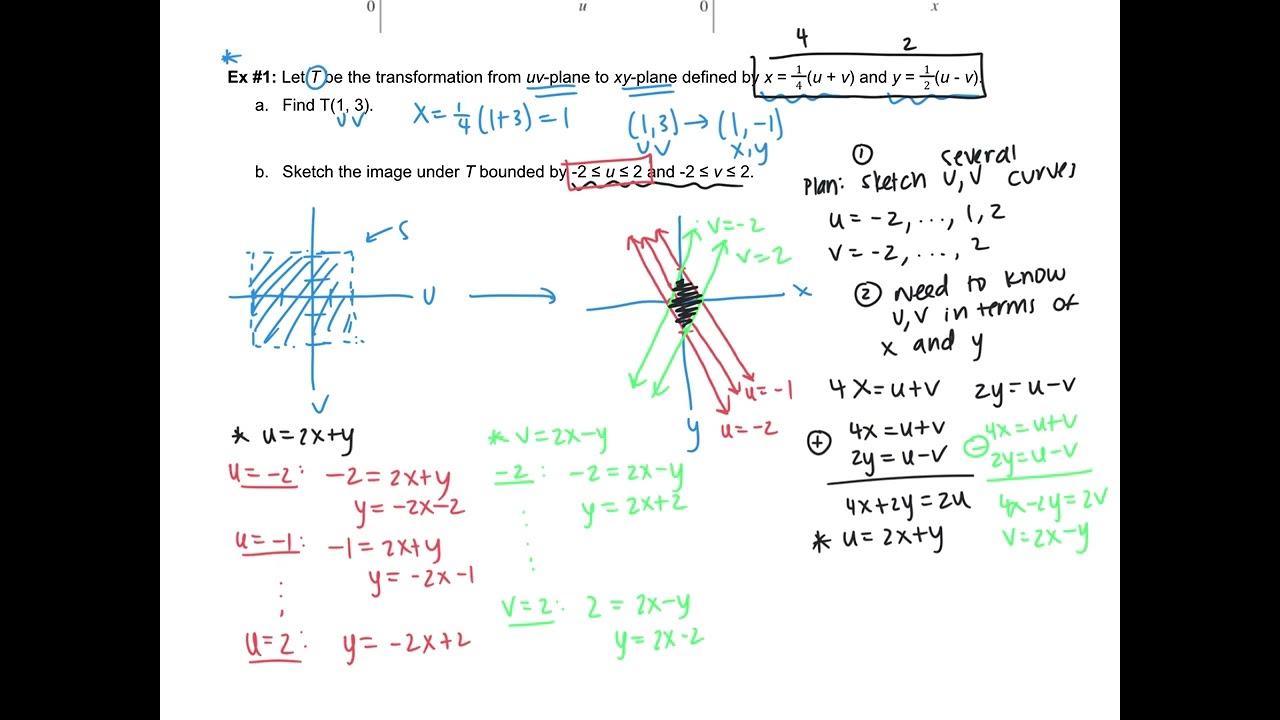 0 u 0 x
4 2
* Ex #1: Let T be the transformation from uv-plane to xy-plane defined by x = 1/4(u + v) and y = 1/2(u - v).
a. Find T(1, 3).
u v
x = 1/4 (1+3) = 1
(1,3) → (1,-1)
u v x, y
b. Sketch the image under T bounded by -2 ≤ u ≤ 2 and -2 ≤ v ≤ 2.
① several
Plan: sketch u, v curves
u = -2, ..., 1, 2
v = -2, ..., 2
② need to know
u, v in terms of
x and y
S
u
v
v = -2
v = 2
x
u = -1
u = -2
y
4x = u+v 2y = u-v
⊕ 4x = u+v
2y = u-v
4x+2y = 2u
* u = 2x+y
⊖ 4x = u+v
2y = u-v
4x-2y = 2v
v = 2x-y
* u = 2x+y
u = -2: -2 = 2x+y
y = -2x-2
u = -1: -1 = 2x+y
y = -2x-1
u = 2: y = -2x+2
* v = 2x-y
-2: -2 = 2x-y
y = 2x+2
v = 2: 2 = 2x-y
y = 2x-2